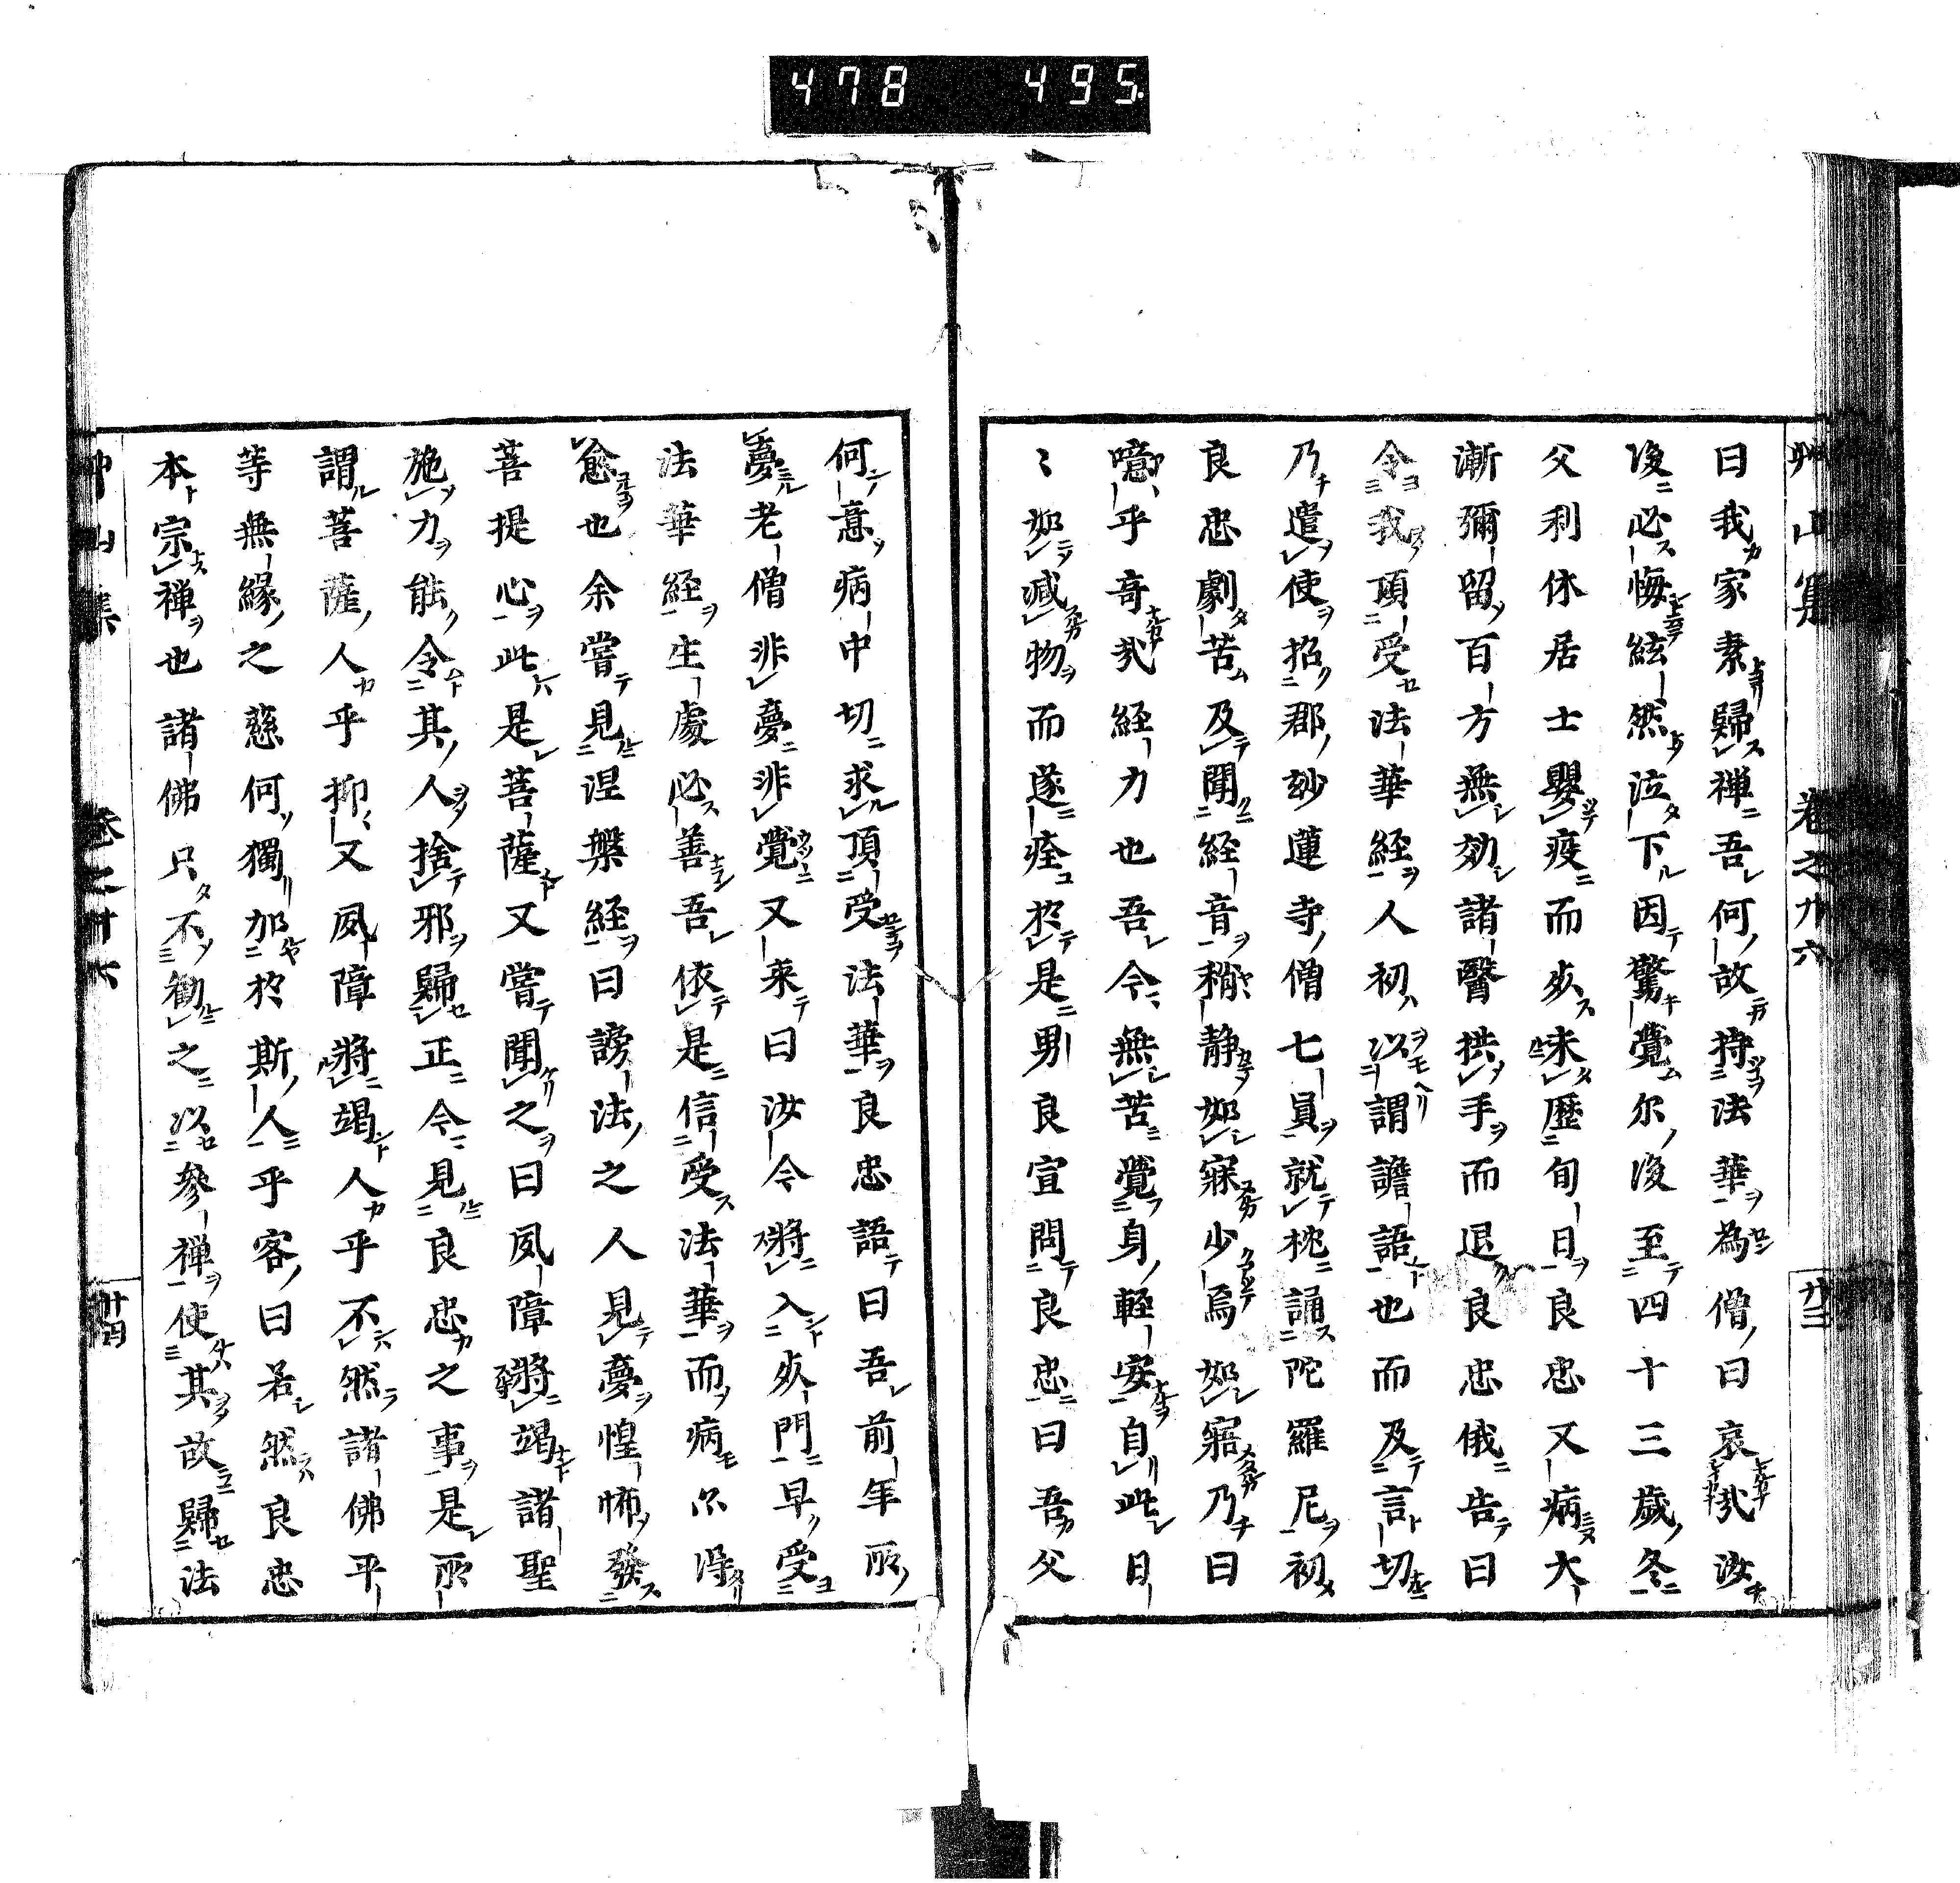 478 495.
艸山集 卷之廿六 廿三
曰我家素歸禅吾何故持法華為僧曰哀㢤汝
後必悔絃然泣下因驚覺尓後至四十三歳冬
父利休居士嬰疫而㱕未歴旬日良忠又病大
漸彌留百方無効諸醫拱手而退良忠俄告曰
令我頂受法華経人初以謂譫語也而及言切
乃遣使招郡玅蓮寺僧七員就枕誦陀羅尼初
良忠劇苦及聞経音稍静如寐少焉如寤乃曰
噫乎奇㢤経力也吾今無苦覺身軽安自此日
〻如减物而遂痊於是男良宣問良忠曰吾父
何意病中切求頂受法華良忠語曰吾前年所
夢老僧非夢非覺又来曰汝今將入㱕門早受
法華経生處必善吾依是信受法華而病尓得
愈也余嘗見涅槃経曰謗法之人見夢惶怖發
菩提心此是菩薩又嘗聞之曰夙障將竭諸聖
施力能令其人捨邪歸正今見良忠之事是所
謂菩薩人乎抑又夙障將竭人乎不然諸佛平
等無緣之慈何獨加於斯人乎客曰若然良忠
本宗禅也諸佛只不勧之以參禅使其故歸法
艸山集 卷之廿六 廿四